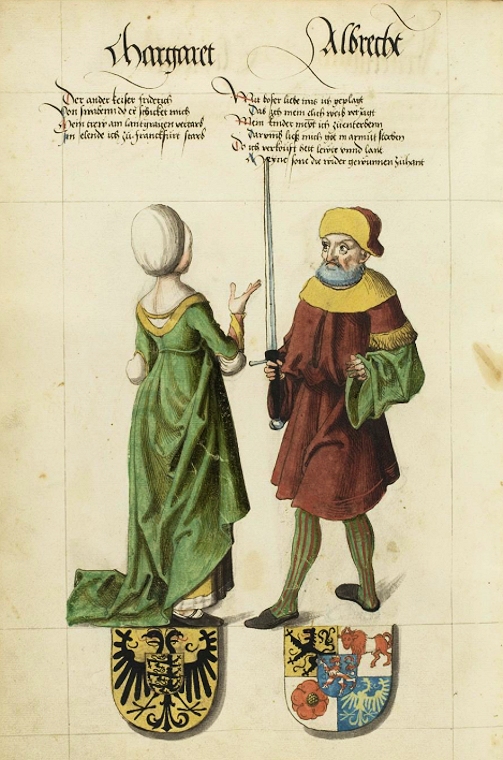 Margaret
Albrecht
Der ander keiser fridrich
Von swabenn do er schicket mich
Dem herr am lantgrauen verdarb
Im elende ich zu Franckfurt starb
Mit boser liebe was ich geplagt
Das ich mein elich weib veriagt
Mein kinder ich zuenterbenn
Darumb ließ mich got in armut sterben
Do ich verkouft hett lewte vnnd lant
Meyne sone die wider gewunnen zuhant